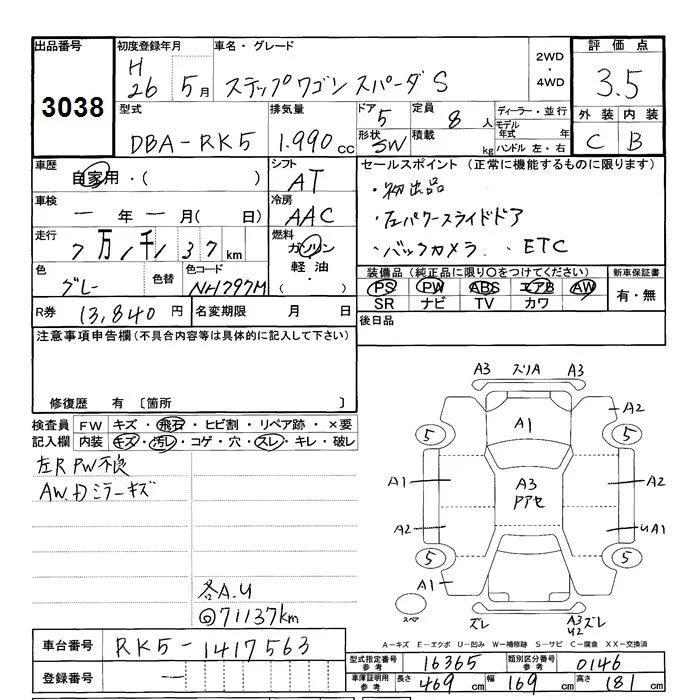 出品番号 初度登録年月 車名・グレード 2WD・4WD 評価点
3038 H26 5月 ステップワゴン スパーダS 3.5
型式 排気量 ドア 5 定員 8人 ディーラー・並行 外装 内装
DBA-RK5 1.990cc 形状 SW 積載 kg モデル年式 年 ハンドル 左・右 C B
車歴 自家用・( ) シフト AT セールスポイント (正常に機能するものに限ります)
車検 ー年ー月( 日) 冷房 AAC ・初出品
・左パワースライドドア
走行 7万1千137km 燃料 ガソリン 軽油・( ) ・バックカメラ . ETC
色 グレー 色替 色コード NH797M 装備品 (純正品に限り○をつけてください) 新車保証書
PS PW ABS エアB AW 有・無
SR ナビ TV カワ
R券 13,840円 名変期限 月 日 後日品
注意事項申告欄(不具合内容等は具体的に記入して下さい)
修復歴 有 〔箇所 〕
検査員 FW キズ・飛石・ヒビ割・リペア跡・×要
記入欄 内装 キズ・汚レ・コゲ・穴・スレ・キレ・破レ
左R PW不良
AW.Dミラーキズ
各A.U
◎71137km
A3 ズリA A3
A2
5 A1 5
A1 A3 A2
アアセ
A2 uA1
5 5
A1
スペア ズレ A3 ズレ
U2
A-キズ E-エクボ U-凹み W-補修跡 S-サビ C-腐食 XX-交換済
車台番号 RK5-1417563
登録番号
型式指定番号 参考 16365 類別区分番号 参考 0146
車庫証明用 参考 長さ 469cm 幅 169cm 高さ 181cm